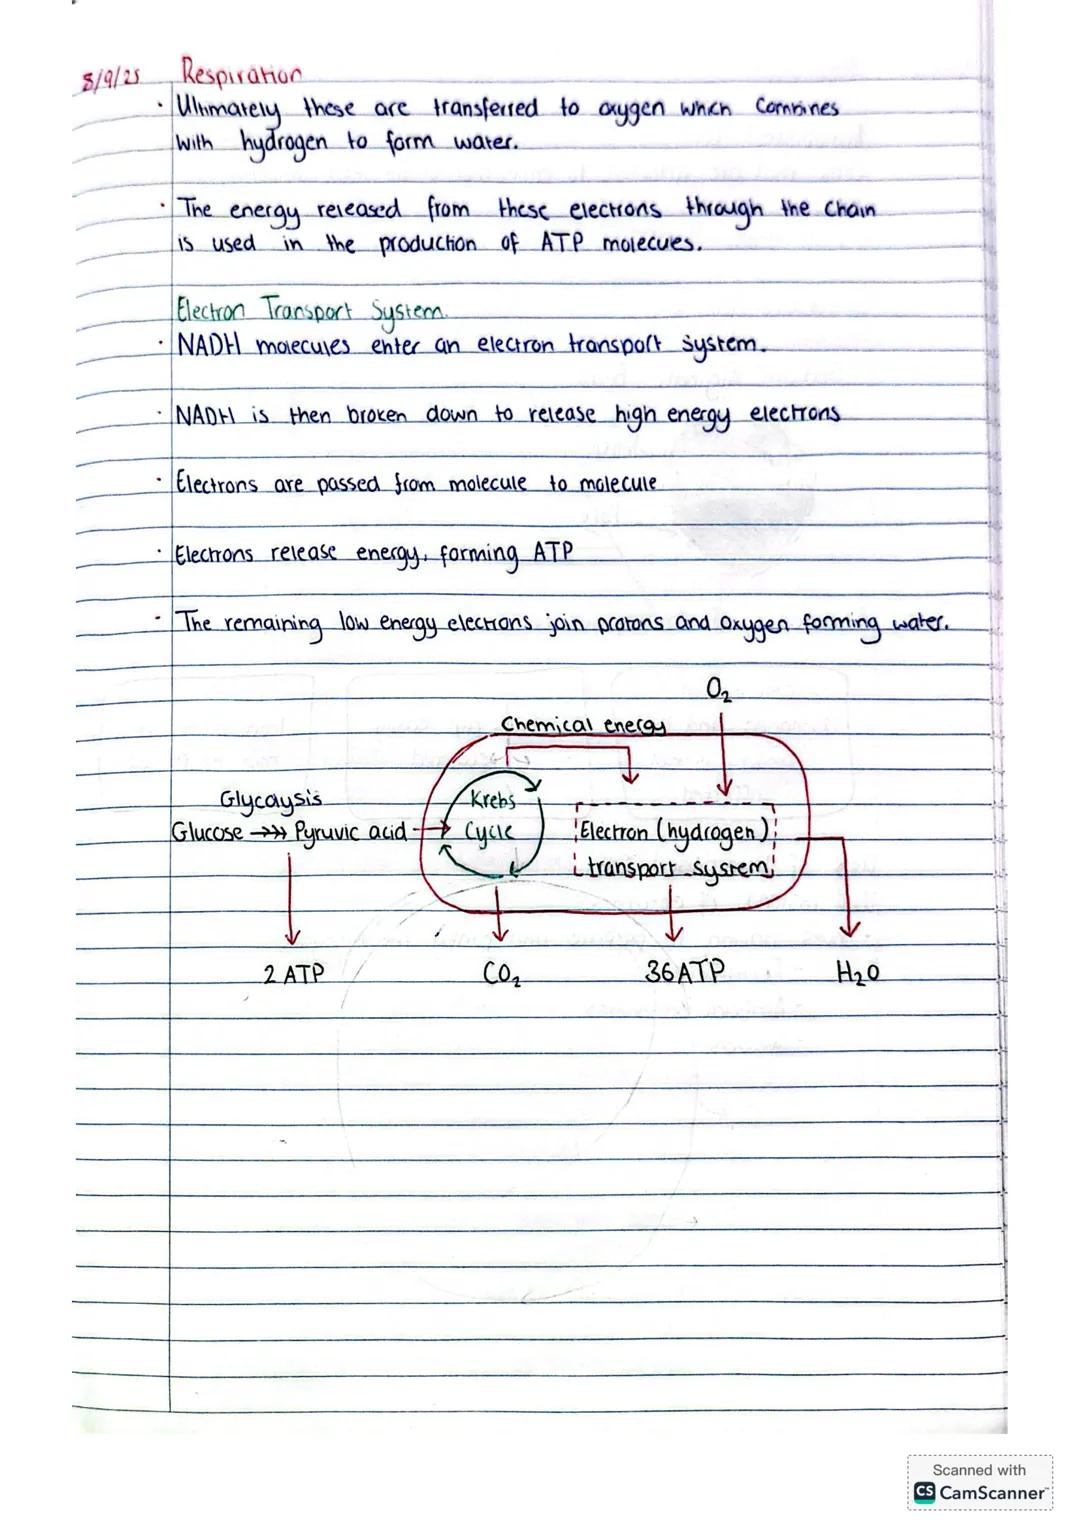 8/9/25 Respiration
· Ultimately these are transferred to oxygen which combines
with hydrogen to form water.
· The energy released from these electrons through the chain
is used in the production of ATP molecues.
Electron Transport System.
· NADH molecules enter an electron transport system.
· NADH is then broken down to release high energy electrons
· Electrons are passed from molecule to molecule
· Electrons release energy, forming ATP
· The remaining low energy electrons join protons and oxygen forming water.
O₂
Chemical energy
Glycolysis
Glucose →»» Pyruvic acid
Krebs
Cycle
Electron (hydrogen)
transport system
2 ATP
CO₂
36 ATP
H₂O
Scanned with
CS CamScanner